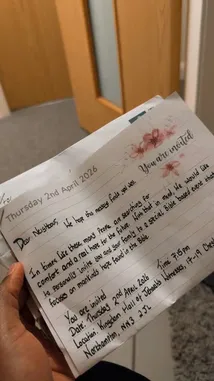 Thursday 2nd April 2026
You are invited
Dear Neighbors, We hope this message finds you well.
In times like these many people are searching for
comfort and a real hope for the future. With that in mind We would like
to personally invite you and your family to a special Bible based event that
focuses on mankinds hope found in the Bible.
You are invited
Date: Thursday 2nd April 2026 Time 7:15pm
Location: Kingdom Hall of Jehovah's Witnesses, 17-19
Northampton, NN3 2JL